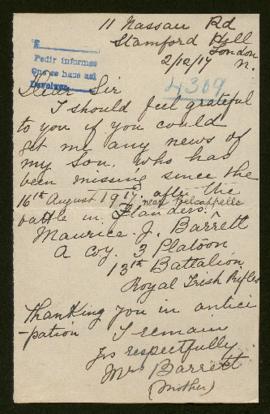 11 Nassau Rd
Stamford Hill
London
N.
2/12/17
Pedir informes
4309
Dear Sir
I should feel grateful
to you if you could
get me any news of
my Son, who has
been missing since the
16th August 1917, after the
battle in Flanders,
near
Maurice. J. Barrett
A Coy. 3 Platoon
13th Battalion
Royal Irish Rifles
Thanking you in antici
-pation I remain
Yrs respectfully
Mrs Barrett
(Mother)